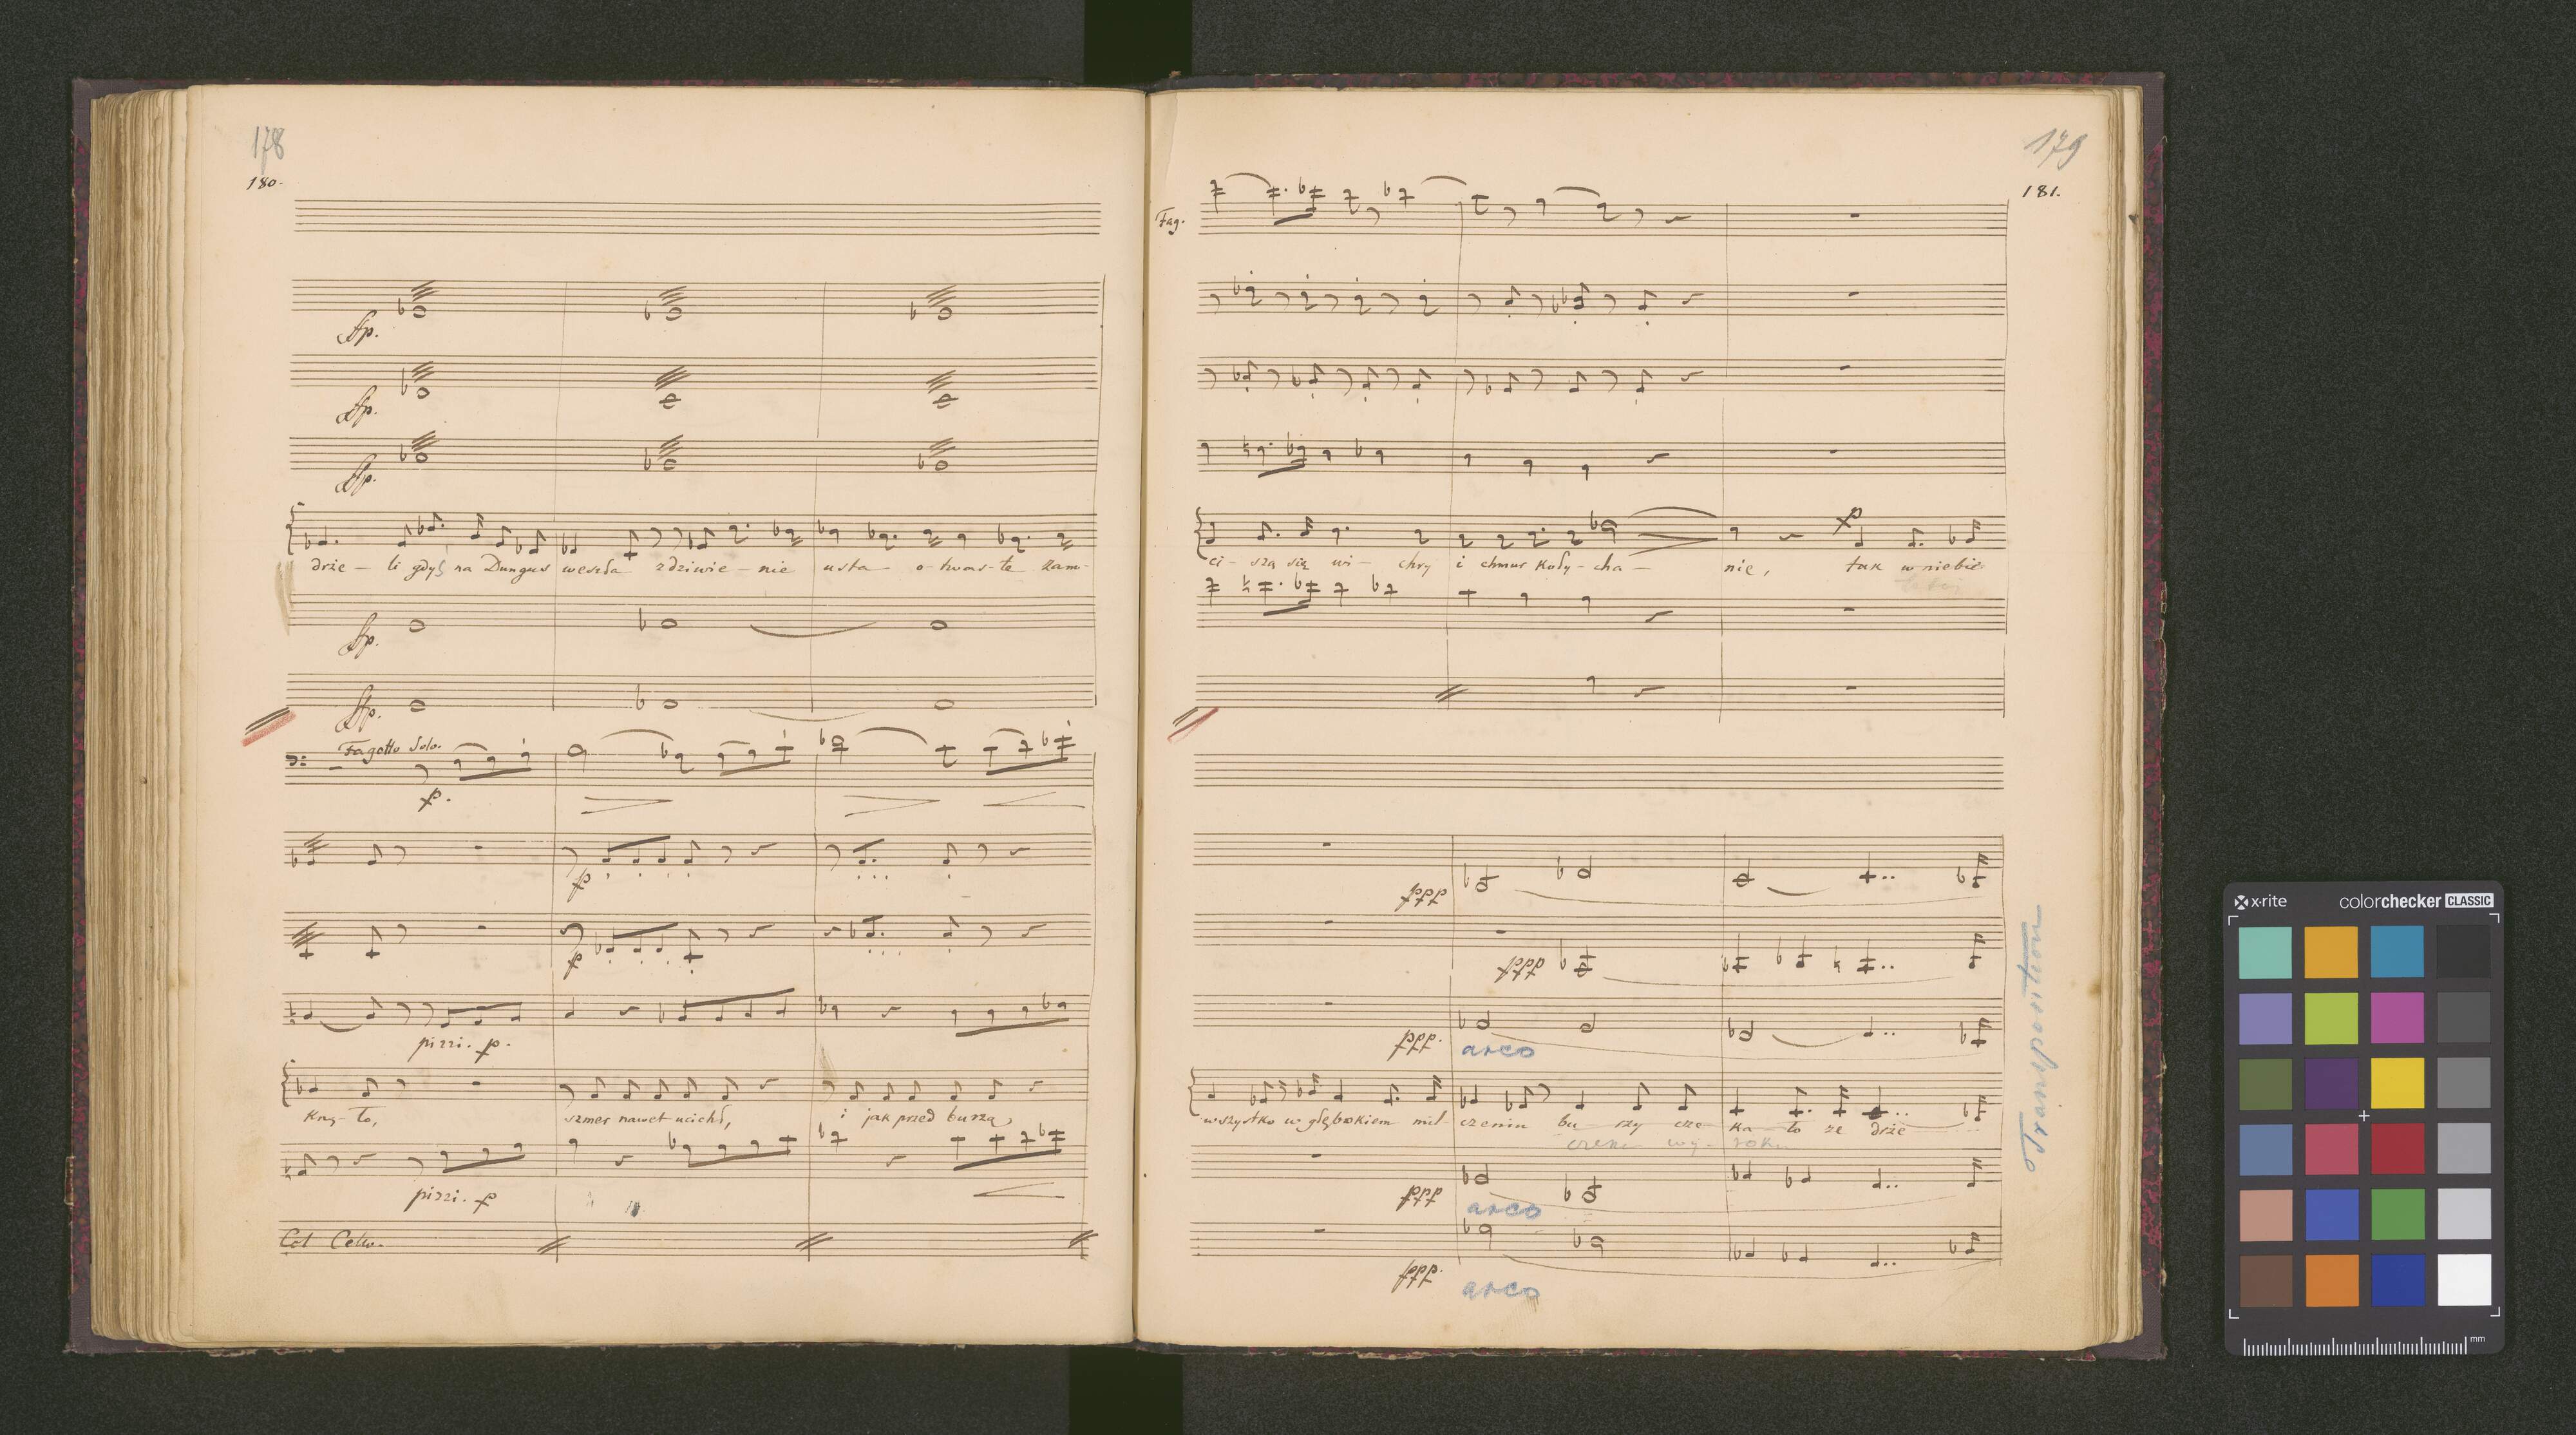 178
180.
fp.
fp.
fp.
drże - li gdyś na Dungus weszła zdziwie - nie usta o - twar - te zam -
fp.
fp.
Fagotto Solo.
p.
p
p
pizzi. p.
kną - to, szmer nawet ucichł, i jak przed burzą
pizzi. p
Col Cello.
179
181.
Fag.
p
ci - szą się wi - chry i chmur koły - cha - nie, tak w niebie
ppp
ppp
ppp. arco
wszystko w głębokiem mil - czeniu bu - rzy cze - ka - to ze drże
czeka wy - roku
ppp arco
ppp. arco
Transposition
x·rite colorchecker CLASSIC
mm